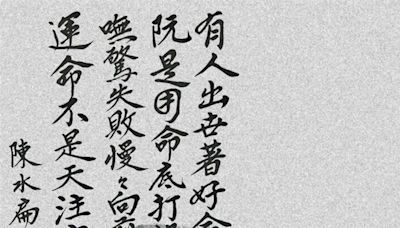 有人出世著好
阮是用命底打
嘸驚失敗慢々向
運命不是天注
陳水扁